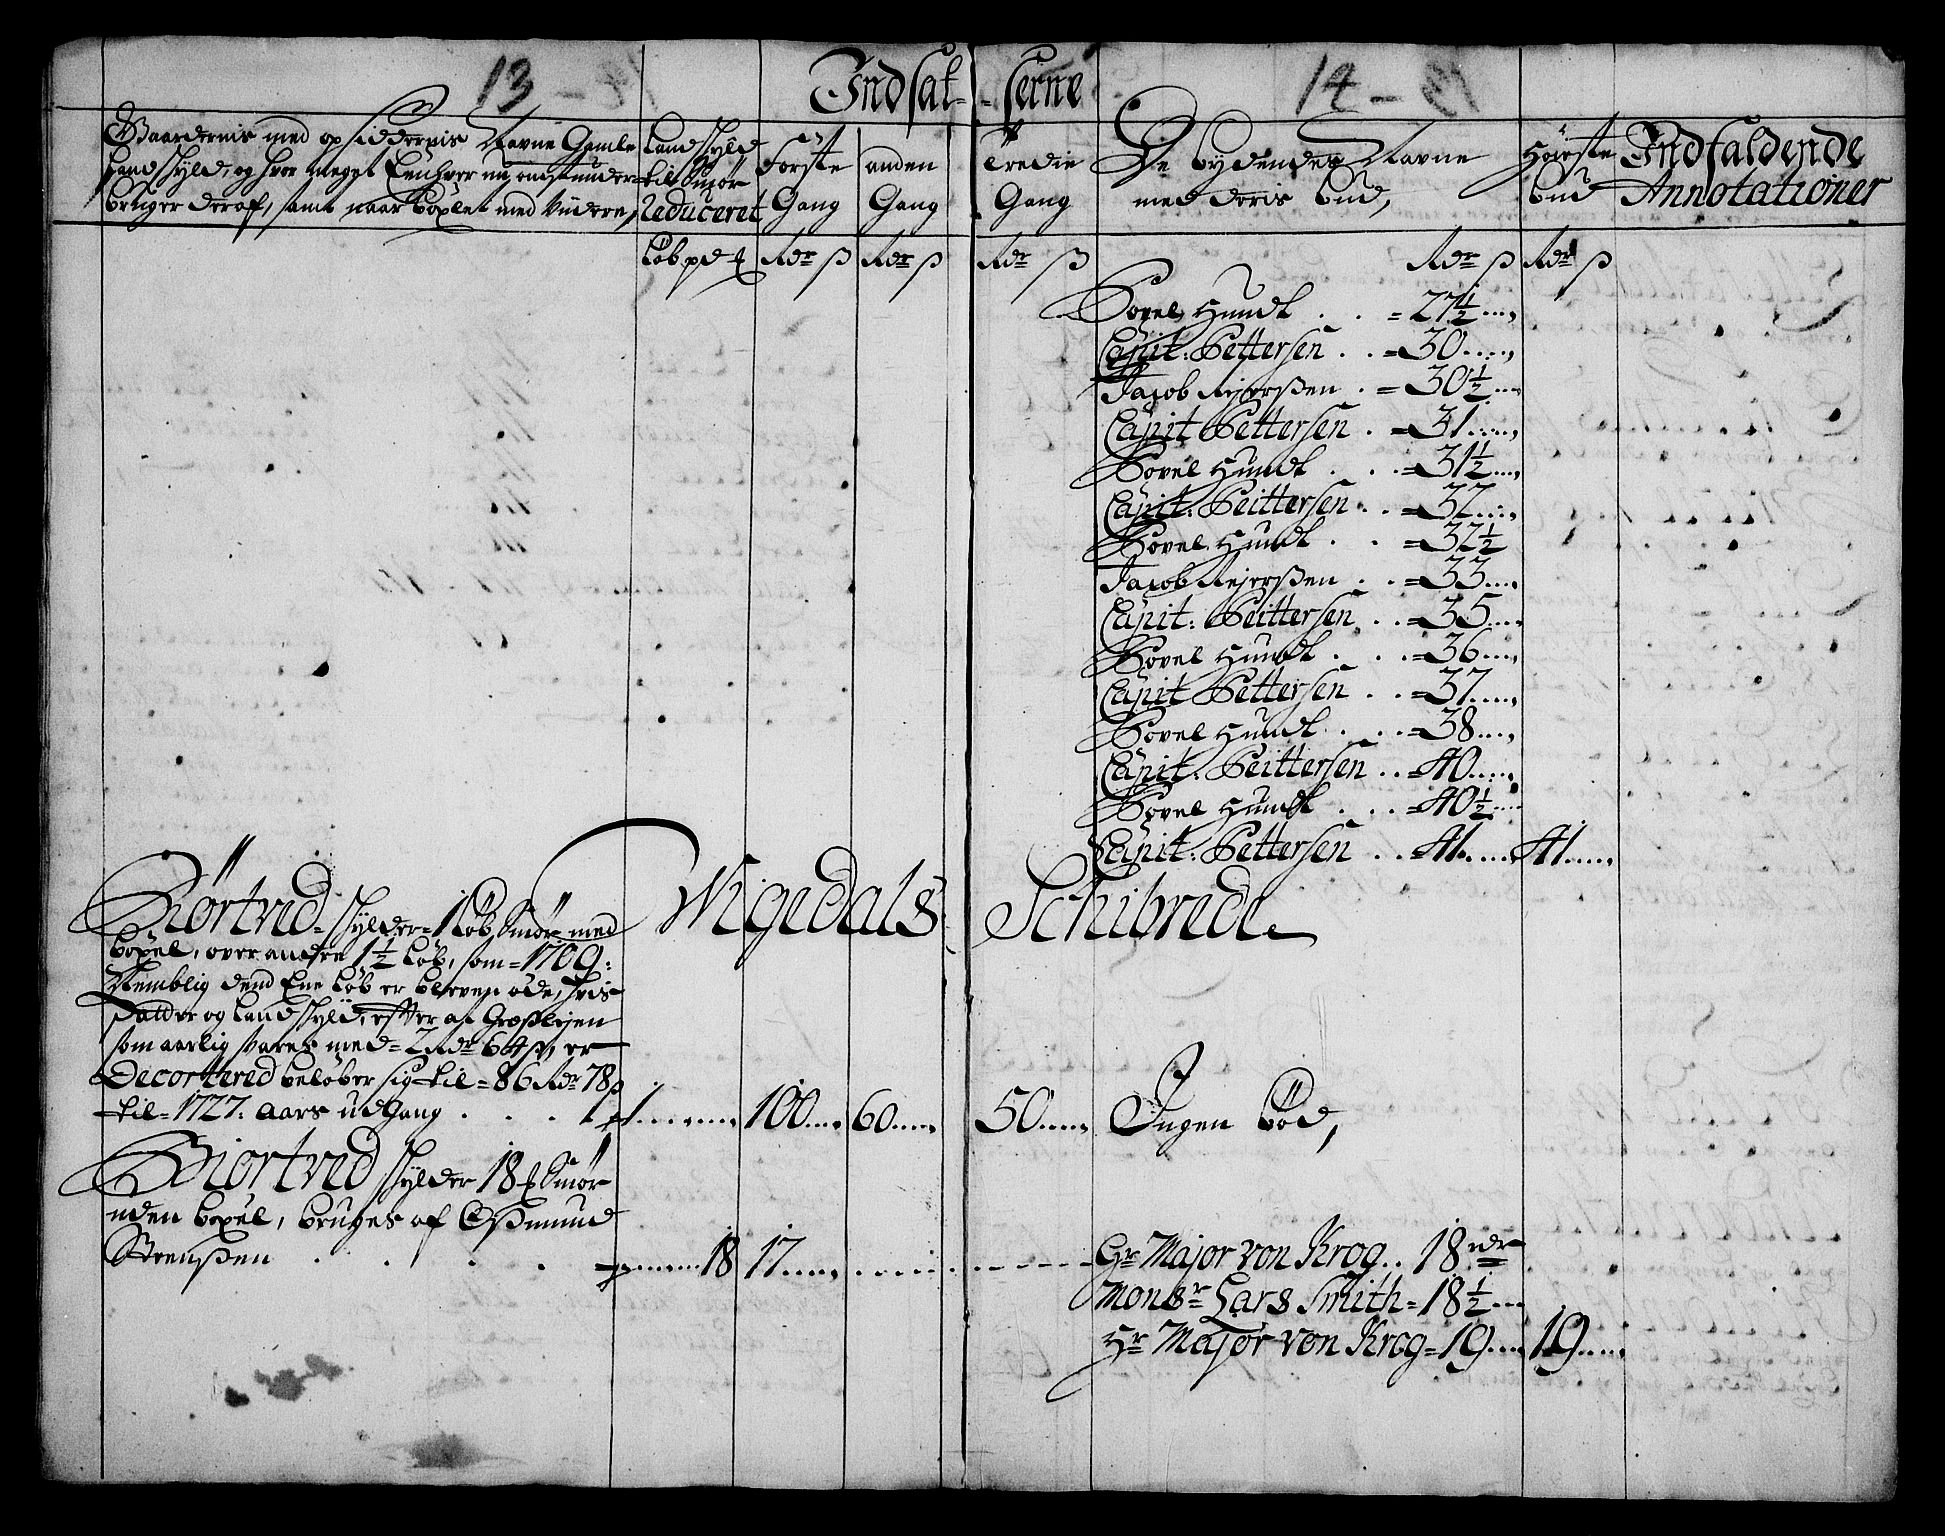 13
14
Indsat- serne
Gaardernis med opsiddernis Nafne Gamle
Landskyld, og hvor meget Eenhver nu omstunder
bruger deraf, samt naar boxlet med Videre,
Landskyld
til Smör
Reduceret
Förste
Gang
anden
Gang
Tredie
Gang
De bydendes Nafne
med deris bud,
Höieste
bud
Indfaldende
Annotationer
Löb pd Rdr ß Rdr ß Rdr ß Rdr ß Rdr ß
Povel Hundt . . = 27½
Capit: Pettersen . . = 30
Jacob Rejerßen . = 30½
Capit Pettersen . = 31
Povel Hundt . . . = 31½
Capit: Peittersen . . = 32
Povel Hundt . . = 32½
Jacob Rejerßen . . = 33
Capit: Peittersen . . = 35
Povel Hundt . . . = 36
Capit Pettersen . . = 37
Povel Hundt . . . = 38
Capit: Peittersen . . = 40
Povel Hundt . . . = 40½
Capit: Pettersen . . = 41 41
Wigedals Schibrede
Biörtved skylder = 1 Löb Smör med
boxel, over anden 1½ Löb, som = 1709:
Nemblig dend Ene Löb er bleven öde, hvis
Skatter og Landskyld, efter at Græsleyen
som aarlig svares med = 2 Rdr 64 ß, er
Decortered beløber sig til = 86 Rdr 78 ß
til = 1727: Aars udgang . . . 1 100 60 50 Ingen böd,
Biortved skylder 18 Smör
uden boxel, bruges af Oßmund
Steenßen . . . . 18 17
Hr Major von Krog . . 18 rdr
Monsr Lars Smith = 18½
Hr Major von Krog = 19 19